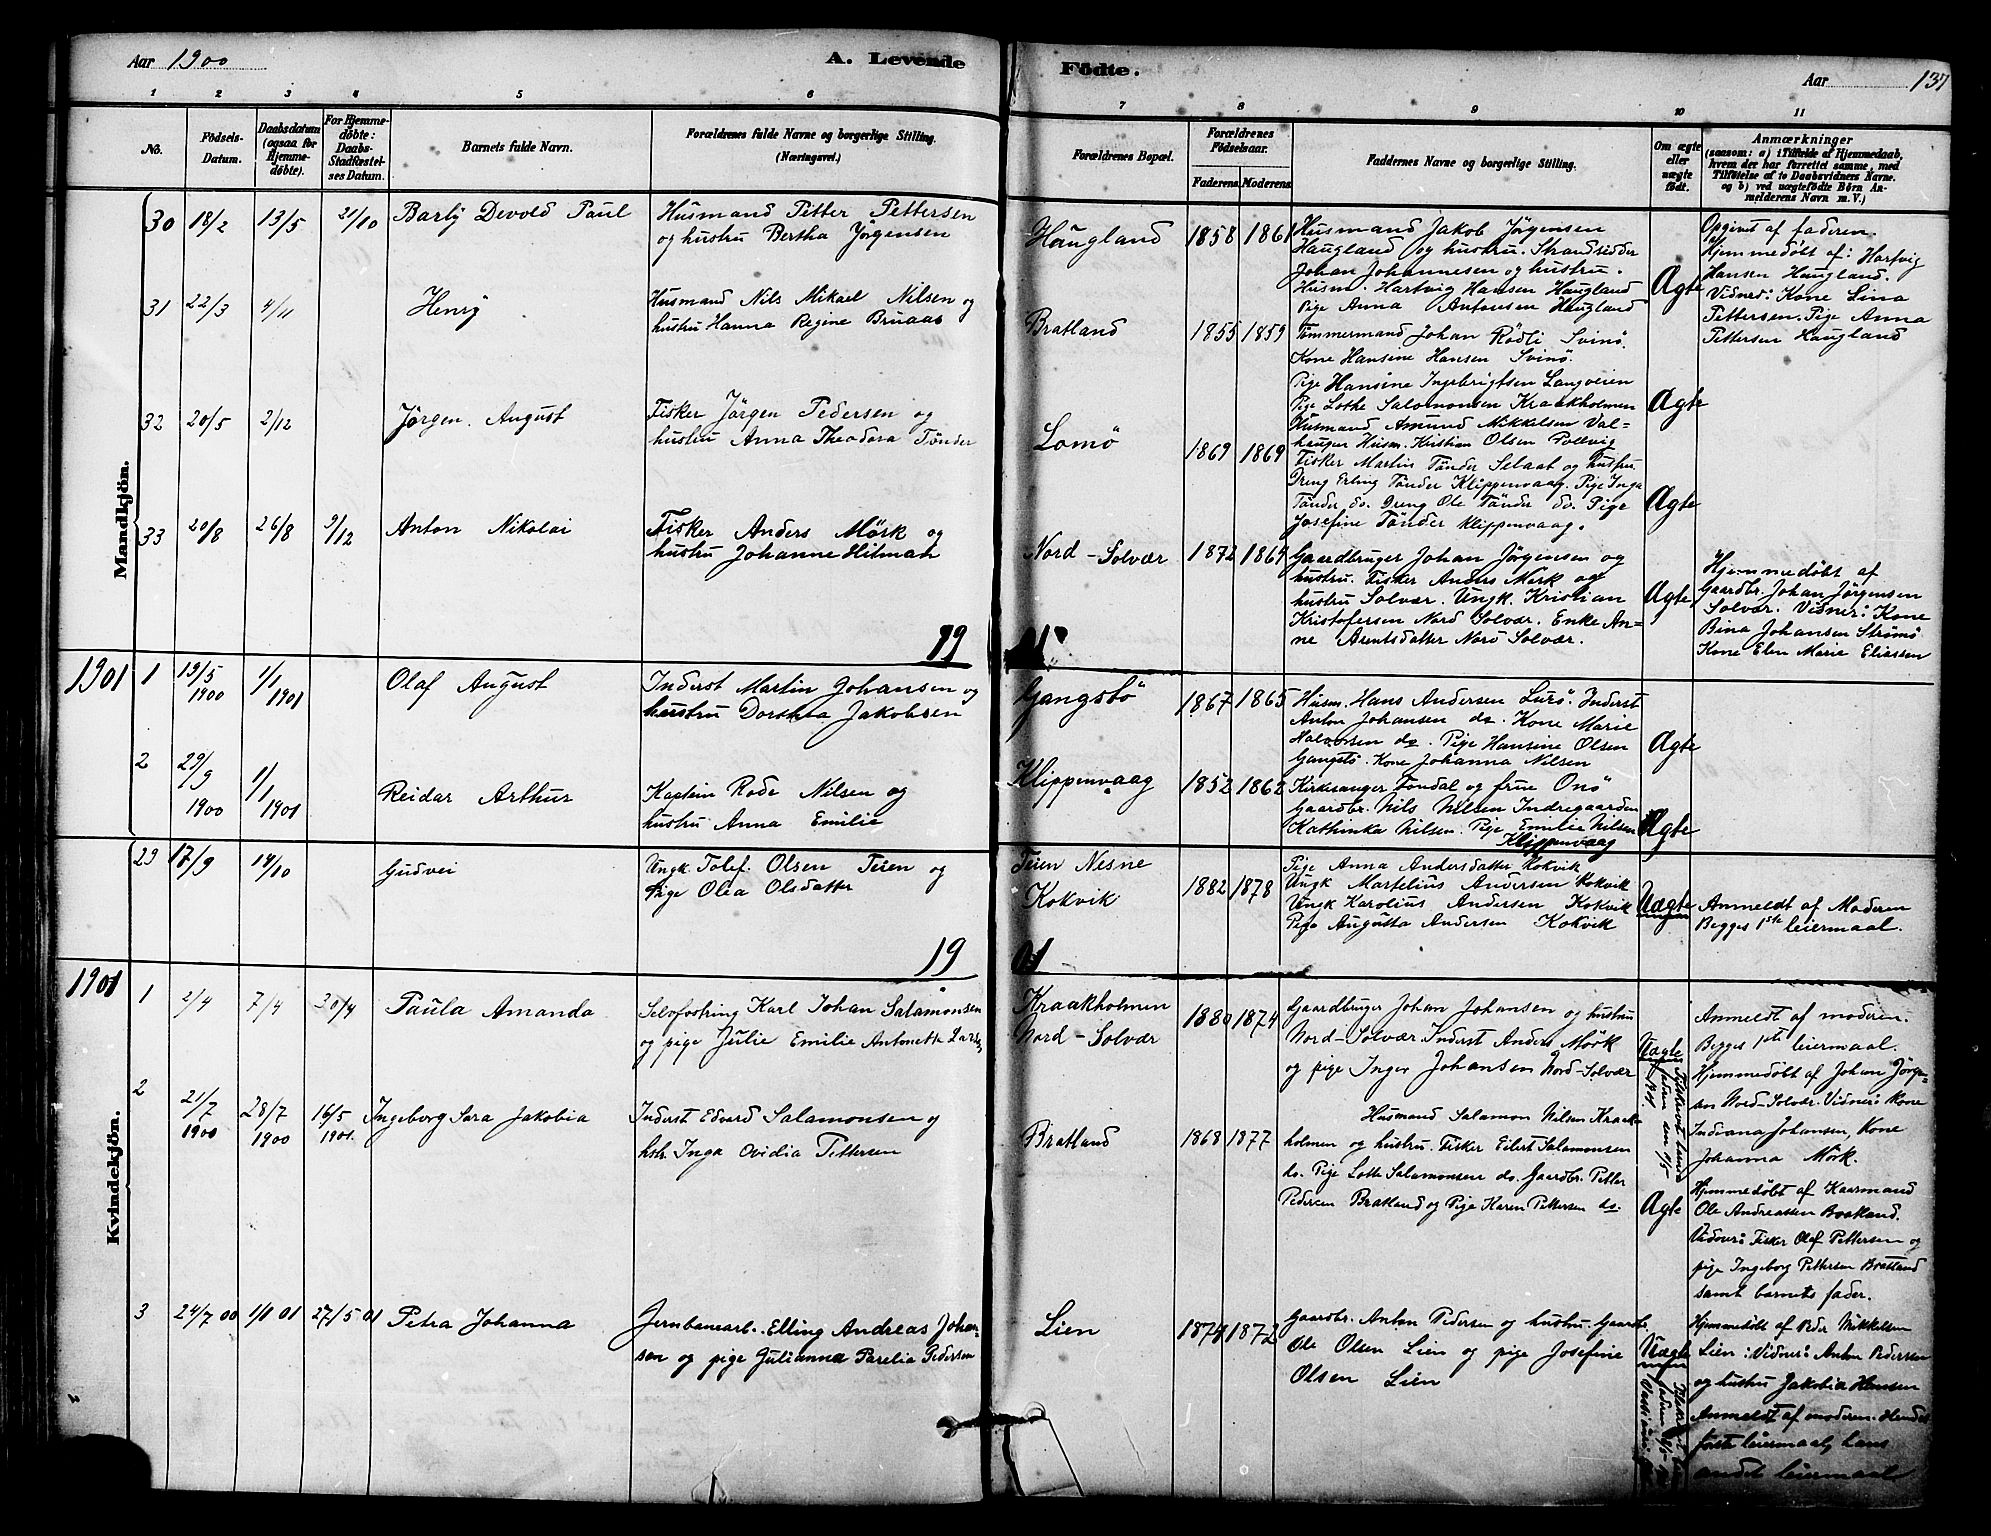 Aar 1900
A. Levende
Fødte.
Aar
137
1 2 3 4 5 6 7 8 9 10 11
No.
Fødsels-Datum.
Daabsdatum (ogsaa for Hjemmedøbte).
For Hjemmedøbte: Daabs-Stadfæstelses Datum.
Barnets fulde Navn.
Forældrenes fulde Navne og borgerlige Stilling. (Næringsvei.)
Forældrenes Bopæl.
Forældrenes Fødselsaar.
Faderens. Moderens.
Faddernes Navne og borgerlige Stilling.
Om ægte eller uægte født.
Anmærkninger (saasom: a) i Tilfælde af Hjemmedaab, hvem der har forrettet samme, med Tilføielse af to Daabsvidners Navne. og b) ved uægtefødte Børn Anmelderens Navn m. V.)
Mandkjön.
30 18/2 13/5 21/10 Barly Devold Paul
Husmand Petter Pettersen
og hustru Bertha Jørgensen
Haugland 1858 1861
Husmand Jakob Jørgensen
Haugland og hustru. Strandsidder
Johan Johannesen og hustru.
Husm. Hartvig Hansen Haugland
Pige Anna Antonsen Haugland
Ægte
Opgivet af faderen.
Hjemmedøbt af: Hartvig
Hansen Haugland.
Vidner: Kone Lina
Pettersen. Pige Anna
Pettersen Haugland
31 22/3 4/11 Henry
Husmand Nils Mikael Nilsen og
hustru Hanna Regine Bruaas
Bratland 1855 1859
Tømmermand Johan Rødli Svinø.
Kone Hansine Hansen Svinø.
Pige Hansine Ingebrigtsen Langveien
Pige Lothe Salomonsen Kraakholmen
Ægte
32 20/5 2/12 Jørgen August
Fisker Jørgen Pedersen og
hustru Anna Theodora Tønder
Lomø 1869 1869
Husmand Amund Mikkelsen Val-
hauger Husm. Kristian Olsen Pollvig
Fisker Martin Tønder Selaat og hustru
Dreng Erling Tønder Klippenvaag. Pige Inga
Tønder do. Dreng Ole Tønder do. Pige
Josefine Tønder Klippenvaag.
Ægte
33 20/8 26/8 9/12 Anton Nikolai
Fisker Anders Mørk og
hustru Johanne Hitmah
Nord-Solvær 1872 1864
Gaardbruger Johan Jørgensen og
hustru. Fisker Anders Mørk og
hustru Solvær. Ungk. Kristian
Kristofersen Nord Solvær. Enke An=
ne Arentsdatter Nord Solvær.
Ægte
Hjemmedøbt af
Gaardbr. Johan Jørgensen
Solvær. Vidner: Kone
Bina Johansen Strømø
Kone Elen Marie Eliassen
19 01
1901
1 19/5 1900 1/1 1901 Olaf August
Inderst Martin Johansen og
hustru Dorthea Jakobsen
Gangstø 1867 1865
Husm. Hans Andersen Lurø. Inderst
Anton Johansen do. Kone Marie
Halvorsen do. Pige Hansine Olsen
Gangstø. Kone Johanna Nilsen
Ægte
2 29/9 1900 1/1 1901 Reidar Arthur
Kaptein Rode Nilsen og
hustru Anna Emilie
Klippenvaag 1852 1862
Kirkesanger Fondal og frue Onø
Gaardbr. Nils Nilsen Indregaarden
Kathinka Nilsen. Pige Emilie Nilsen
Klippenvaag
Ægte
29 17/9 14/10 Gudvei
Ungk. Tolef Olsen Teien og
Pige Olea Olsdatter
Teien Nesne
Kokvik
1882 1878
Pige Anna Andersdatter Kokvik
Ungk Martelius Andersen Kokvik
Ungk Karolius Andersen Kokvik
Pige Augusta Andersen Kokvik
Uægte
Anmeldt af Moderen
Begges 1ste leiermaal.
19 01
Kvindekjön.
1901
1 2/4 7/4 30/4 Paula Amanda
Selvfostring Karl Johan Salamonsen
og pige Julie Emilie Antonette Larsen
Kraakholmen
Nord-Solvær
1880 1874
Gaardbruger Johan Johansen og hustru
Nord-Solvær. Inderst Anders Mørk
og pige Inger Johansen Nord-Solvær
Uægte
Anmeldt af moderen.
Begges 1ste leiermaal.
Hjemmedøbt af Johan Jørgen=
sen Nord-Solvær. Vidner: Kone
Indiana Johansen, Kone
Johanna Mørk.
2 21/7 1900 28/7 1900 16/5 1901. Ingeborg Sara Jakobia
Inderst Edvard Salamonsen og
hstr. Inga Ovidia Pettersen
Bratland 1868 1877
Husmand Salamon Nilsen Kraak-
holmen og hustru. Fisker Eilert Salamonsen
do. Pige Lotte Salamonsen do. Gaardbr. Petter
Pedersen Bratland og Pige Karen Pettersen do.
Ægte
Hjemmedøbt af Kaarmand
Ole Andreassen Bratland.
Vidner: Fisker Olaf Pettersen og
pige Ingeborg Pettersen Bratland
samt barnets fader.
3 24/7 00 1/1 01 27/5 01 Petra Johanna
Jernbanearb. Elling Andreas Johan-
sen og pige Julianna Parelia Pedersen
Lien 1874 1872
Gaardbr. Anton Pedersen og hustru. Gaardbr.
Ole Olsen Lien og pige Josefine
Olsen Lien
Uægte
Hjemmedøbt af Peder Mikkelsen
Lien: Vidner: Anton Pedersen
og hustru Jakobia Hansen
Anmeldt af moderen. Hendes
første leiermaal, hans
andet leiermaal